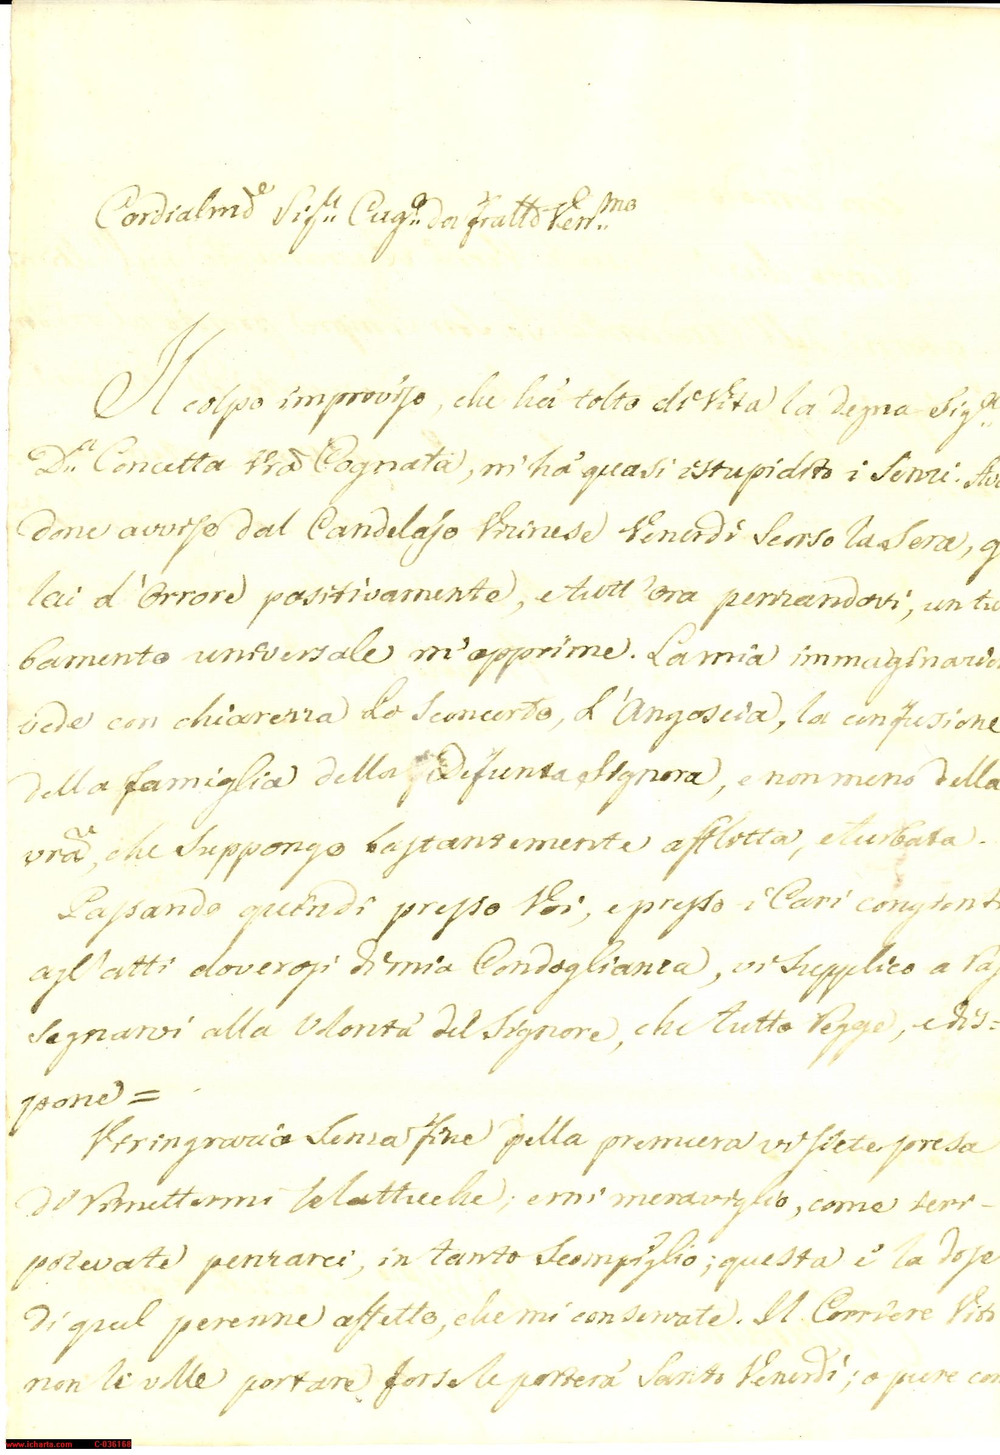 Cordialmo Sigr. Cugo. da fratto Venmo..
Il colpo improviso, che há tolto di Vita la degna Sigra..
Da.. Concetta vrã Cognata, m'há quasi istupidito i Senzi. Av
done avviso dal Candelajo Venerdi Scorso la Sera, g
lai d'orrore positivamente, e tutt'ora penzandovi, un tu
bamento universale m'opprime. La mia immaginazio
vede con chiarezza Lo Sconcerto, L'Angoscia, la confusione
della famiglia della Defunta Signora, e non meno della
vrã, che Suppongo bastantemente afflitta, e turbata.
Passando quindi presso Voi, e presso i Cari congionti
agl'atti doverosi di mia Condoglianza, vi Supplico a ras
segnarvi alla Volontá del Signore, che tutto Regge, e dis=
pone=
Vi ringrazio Senza fine pella premura vi siete presa
di rimettermi le lattuche; e mi meraviglio, come
potevate penzarci, in tanto Scompiglio; questa é la dose
di quel perenne affetto, che mi conservate. Il Corriere Vito
non le volle portare forse le porterá Santo Venerdi; o pure con
www.icharta.com C-036168